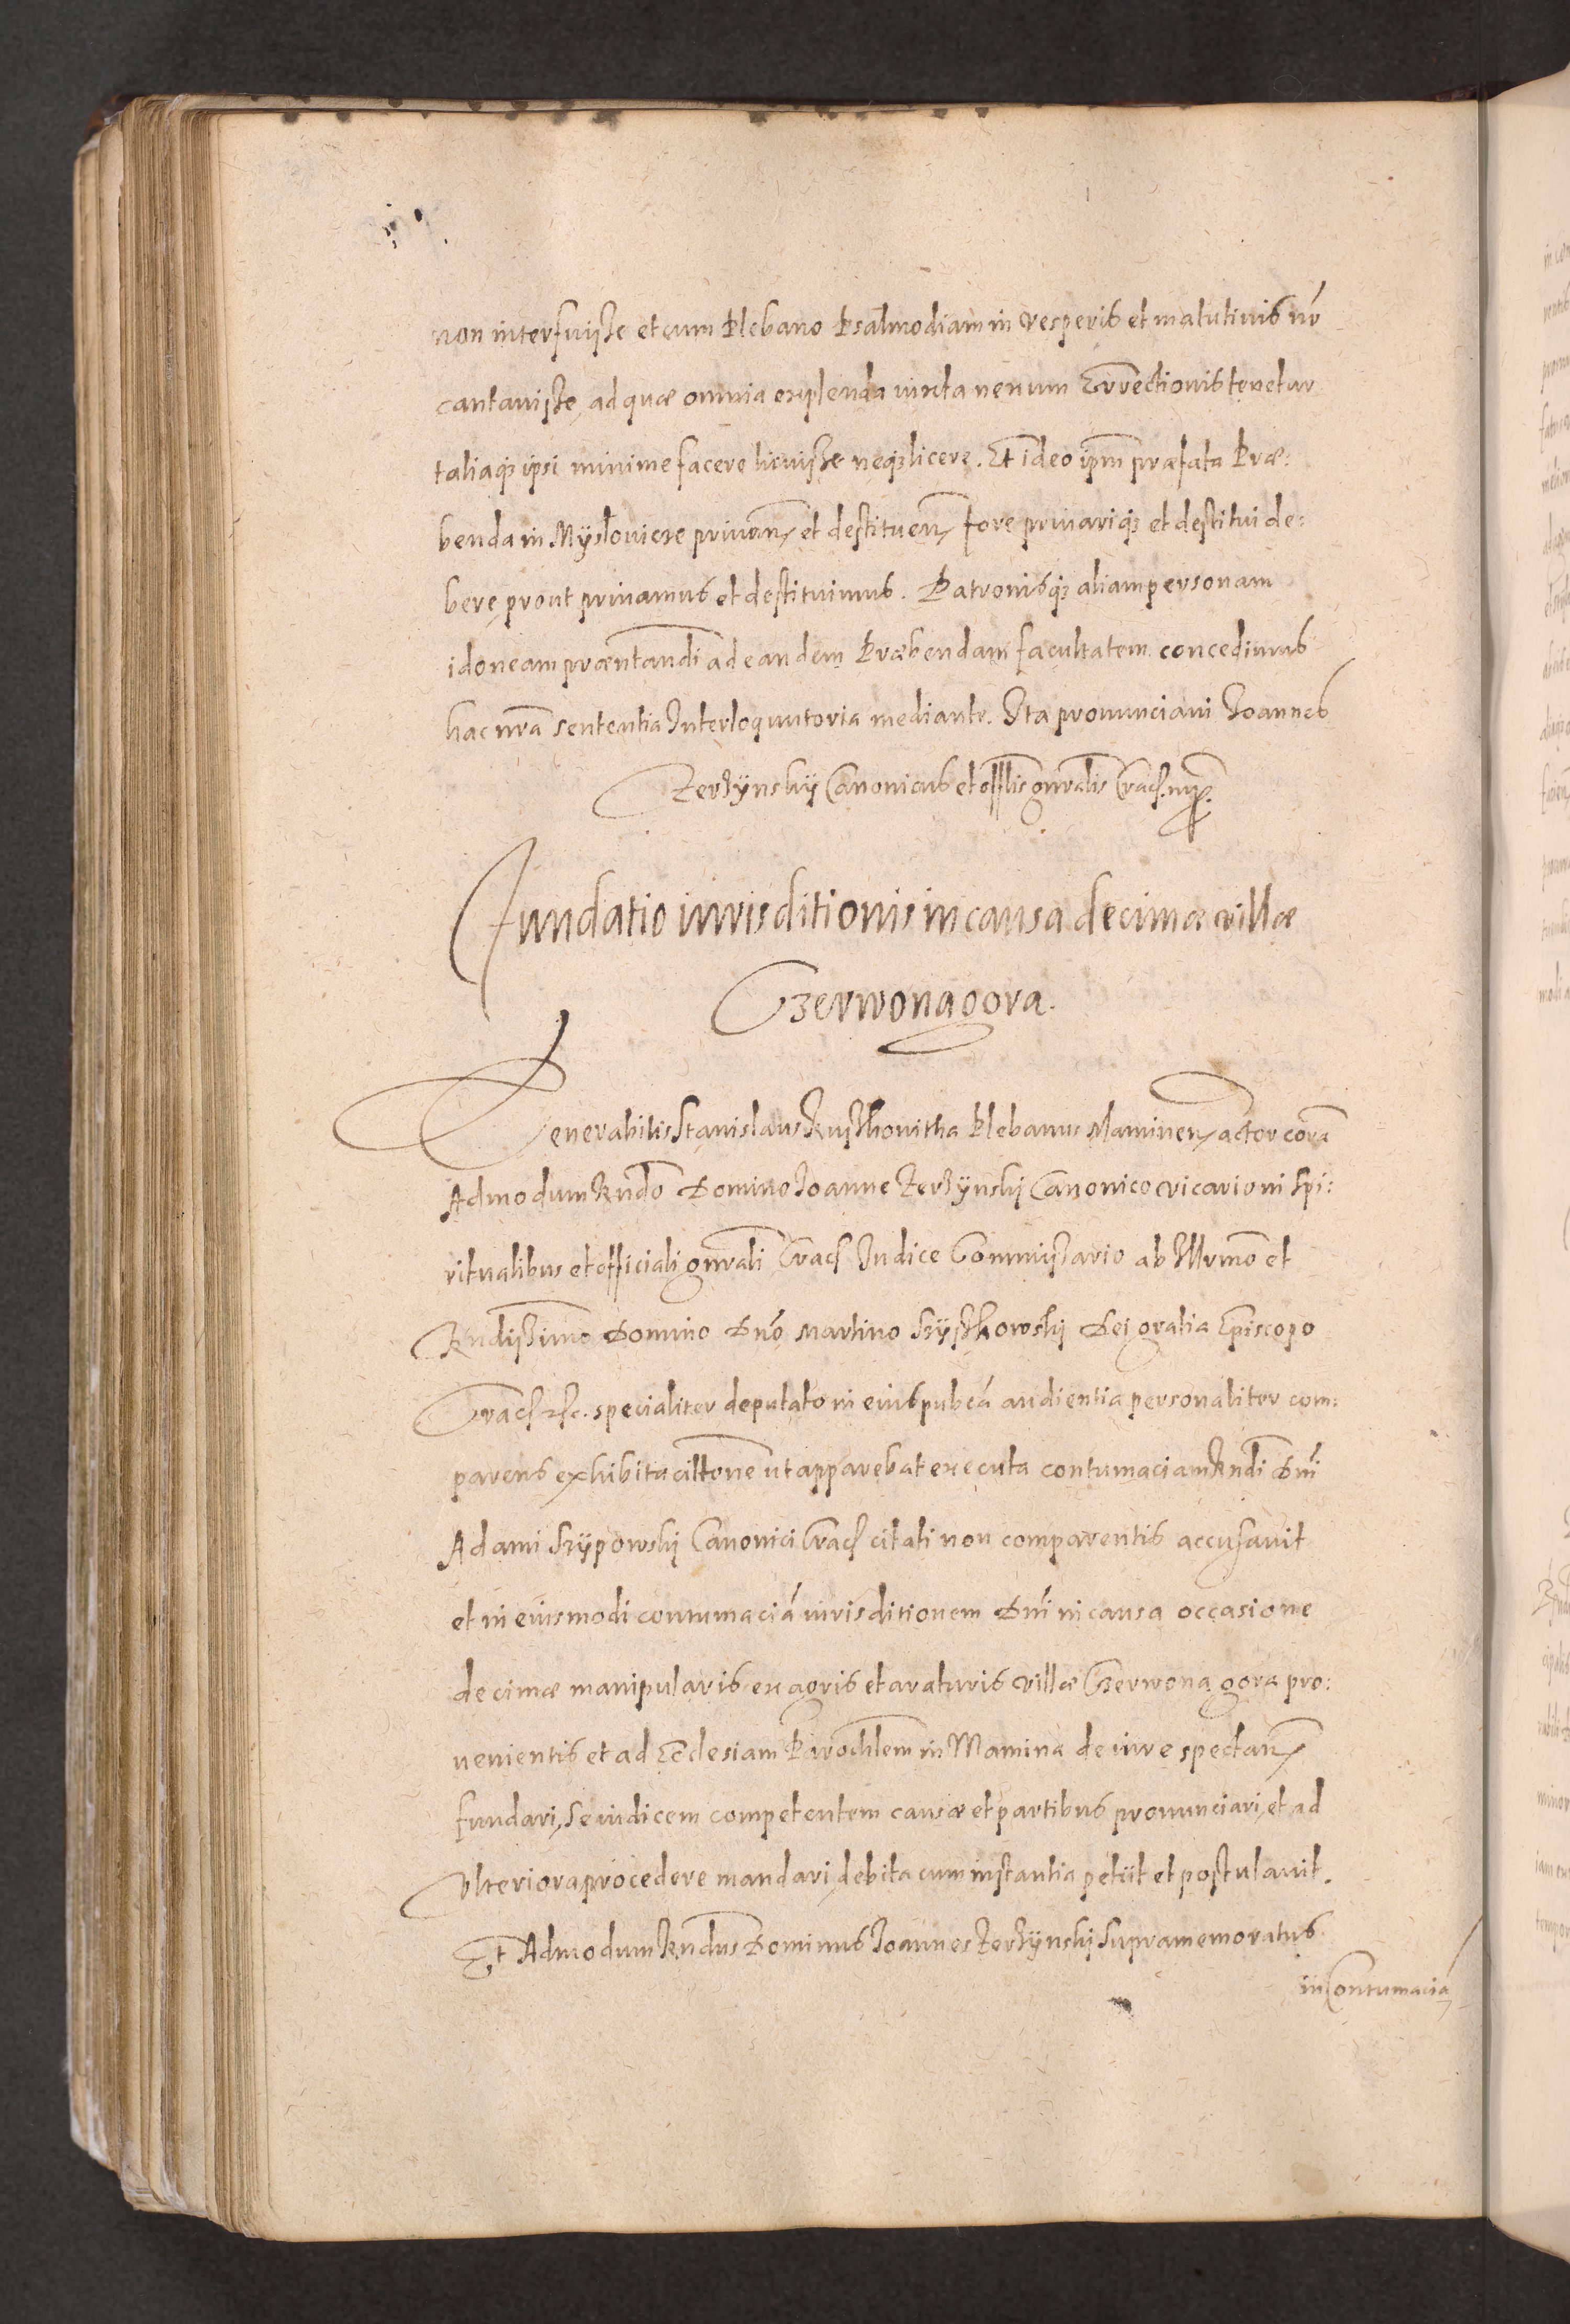 non interfuisse et cum Plebano Psalmodiam in vesperis et matutinis nō
cantavisse, ad quæ omnia explenda iuxta nenum Errectionis tenetur
taliaq; ipsi minime facere licuisse neq; licere. Et ideo ipm̄ præfata Præ:
benda in Mysłovicze privan̄ et destituen̄ fore privariq; et destitui de:
bere, prout privamus et destituimus. Patronisq; aliam personam
idoneam præntandi ad eandem Præbendam facultatem concedimus
hac nrā sententia Interloquutoria mediante. Ita pronunciavi Joannes
Zerzynskÿ Canonicus et offlis gnralis Crac. mp.
Fundatio iurisditionis in causa decimæ villæ
Czerwonagora.
Venerabilis Stanislaus Plebanus Maminen̄ actor corā
Admodum Rndo Domino Joanne Zerzÿnski Canonico vicario in spi:
ritualibus et officiali gnrali Crac Iudice Commissario ab Illrmo et
Rndissimo Domino Dnō Martino Szÿszkowski Dei gratia Episcopo
Crac etc. specialiter deputato in eius pubcā audientia personaliter com:
parens exhibita cittone ut apparebat executa contumaciam Rndi Dni
Adami Szÿpowski Canonici Crac citati non comparentis accusavit
et in eiusmodi contumaciā iurisditionem Dni in causa occasione
decimæ manipularis ex agris et araturis villæ Czerwona gora pro:
venientis et ad Ecclesiam Parochlem in Mamina de iure spectan̄
fundari, se iudicem competentem causæ et partibus pronunciari, et ad
Ulteriora procedere mandari, debita cum instantia petiit et postulavit.
Et Admodum Rndus Dominus Joannes Zerzÿnski supramemoratus
in Contumaciā